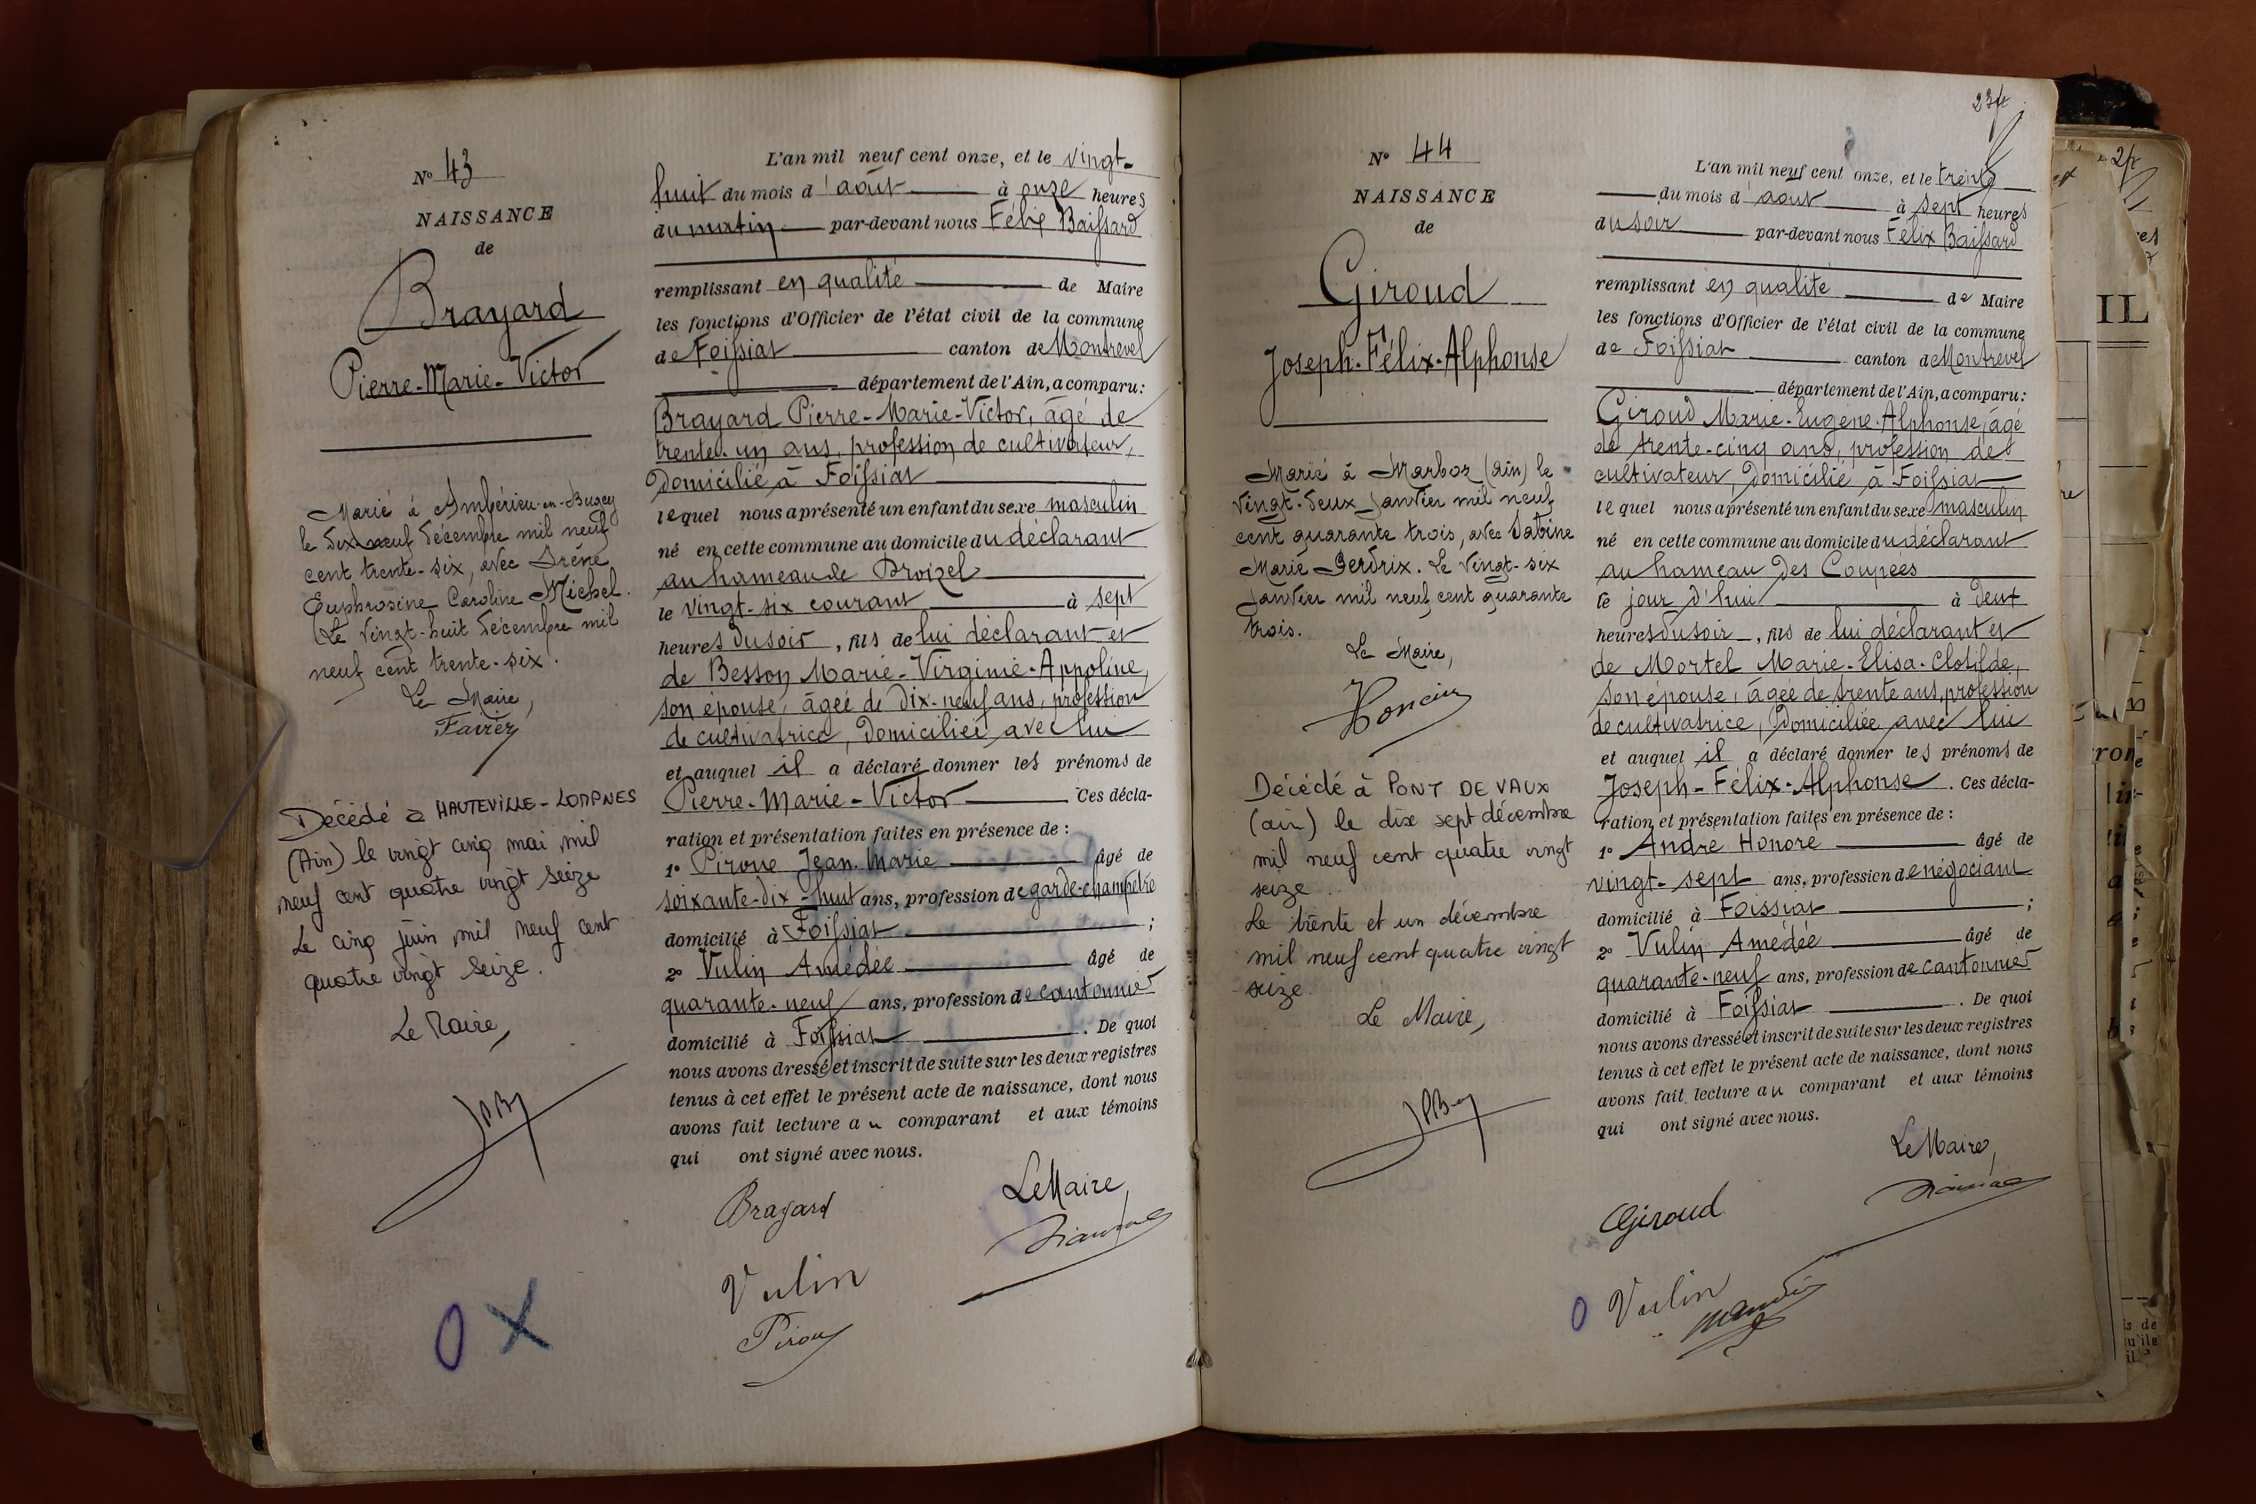 N° 43
NAISSANCE
de
Brayard
Pierre-Marie-Victor
Marié à Ambérieu-en-Bugey
le dix neuf décembre mil neuf
cent trente-six, avec Irène
Euphrosine Caroline Michel.
Le vingt-huit décembre mil
neuf cent trente-six.
Le Maire,
Favier
Décédé à HAUTEVILLE-LOMPNES
(Ain) le vingt cinq mai mil
neuf cent quatre vingt seize
Le cinq juin mil neuf cent
quatre vingt seize.
Le Maire,
O X
L'an mil neuf cent onze, et le vingt-
huit du mois d'août à onze heures
du matin par-devant nous Félix Baissard
remplissant en qualité de Maire
les fonctions d'Officier de l'état civil de la commune
de Foissiat canton de Montrevel
département de l'Ain, a comparu:
Brayard Pierre-Marie-Victor, âgé de
trente-un ans, profession de cultivateur,
domicilié à Foissiat
lequel nous a présenté un enfant du sexe masculin
né en cette commune au domicile du déclarant
au hameau de Broizel
le vingt-six courant à sept
heures du soir, fils de lui déclarant et
de Besson Marie-Virginie-Appoline,
son épouse, âgée de dix-neuf ans, profession
de cultivatrice, domiciliée avec lui
et auquel il a déclaré donner les prénoms de
Pierre-Marie-Victor Ces décla-
ration et présentation faites en présence de:
1° Piroue Jean-Marie âgé de
soixante-dix-huit ans, profession de garde-champêtre
domicilié à Foissiat ;
2° Vulin Amédée âgé de
quarante-neuf ans, profession de cantonnier
domicilié à Foissiat. De quoi
nous avons dressé et inscrit de suite sur les deux registres
tenus à cet effet le présent acte de naissance, dont nous
avons fait lecture au comparant et aux témoins
qui ont signé avec nous.
Le Maire,
Brayard
Vulin
Pirou
234
N° 44
NAISSANCE
de
Giroud
Joseph-Félix-Alphonse
Marié à Marboz (Ain) le
vingt-deux Janvier mil neuf
cent quarante trois, avec Sabine
Marie Perdrix. Le vingt-six
Janvier mil neuf cent quarante
trois.
Le Maire,
Décédé à PONT DE VAUX
(ain) le dix sept décembre
mil neuf cent quatre vingt
seize.
Le trente et un décembre
mil neuf cent quatre vingt
seize.
Le Maire,
L'an mil neuf cent onze, et le trente
du mois d'août à sept heures
du soir par-devant nous Félix Baissard
remplissant en qualité de Maire
les fonctions d'Officier de l'état civil de la commune
de Foissiat canton de Montrevel
département de l'Ain, a comparu:
Giroud Marie-Eugène-Alphonse, âgé
de trente-cinq ans, profession de
cultivateur, domicilié à Foissiat
lequel nous a présenté un enfant du sexe masculin
né en cette commune au domicile du déclarant
au hameau des Coupées
le jour d'hui à deux
heures du soir, fils de lui déclarant et
de Mortel Marie-Elisa-Clotilde,
son épouse, âgée de trente ans, profession
de cultivatrice, domiciliée avec lui
et auquel il a déclaré donner les prénoms de
Joseph-Félix-Alphonse. Ces décla-
ration et présentation faites en présence de:
1° André Honoré âgé de
vingt-sept ans, profession de négociant
domicilié à Foissiat ;
2° Vulin Amédée âgé de
quarante-neuf ans, profession de cantonnier
domicilié à Foissiat. De quoi
nous avons dressé et inscrit de suite sur les deux registres
tenus à cet effet le présent acte de naissance, dont nous
avons fait lecture au comparant et aux témoins
qui ont signé avec nous.
Le Maire,
Giroud
O Vulin
IL